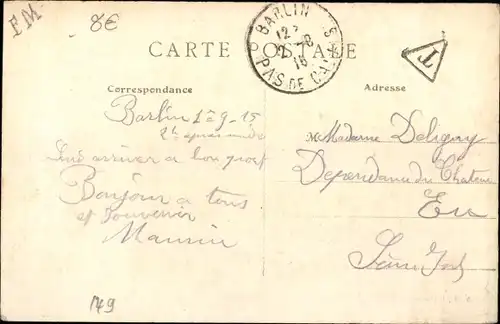 FM
8€
CARTE POSTALE
BARLIN
PAS DE CAL
T
Correspondance
Adresse
Barlin 1-9-15
2h après midi
Suis arriver a bon port
Bonjour a tous
et Souvenir
Maurice
Madame Deligny
Dependance du Chateau
Eu
Seine Inf
179